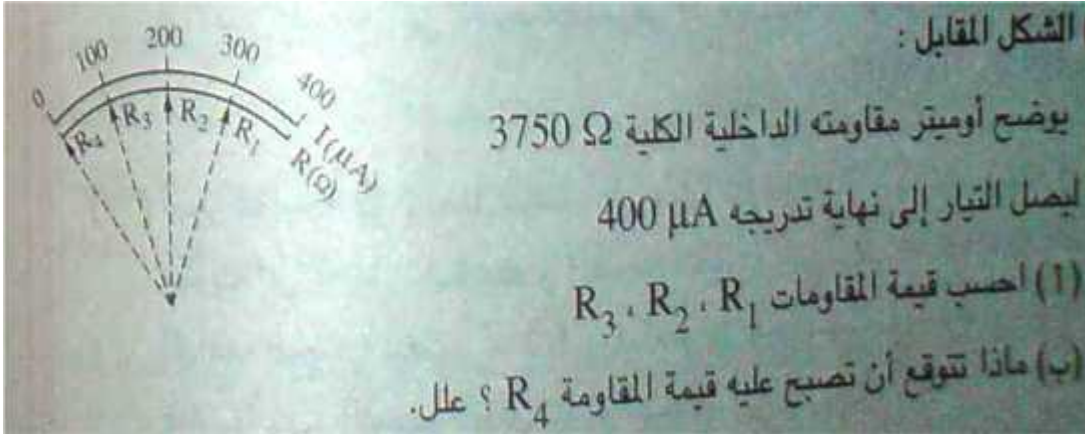 الشكل المقابل :
يوضح أوميتر مقاومته الداخلية الكلية 3750 Ω
ليصل التيار إلى نهاية تدريجه 400 μA
(1) احسب قيمة المقاومات R₁ ، R₂ ، R₃
(ب) ماذا تتوقع أن تصبح عليه قيمة المقاومة R₄ ؟ علل.
0 100 200 300 400
I(μA)
R₄ R₃ R₂ R₁
R(Ω)